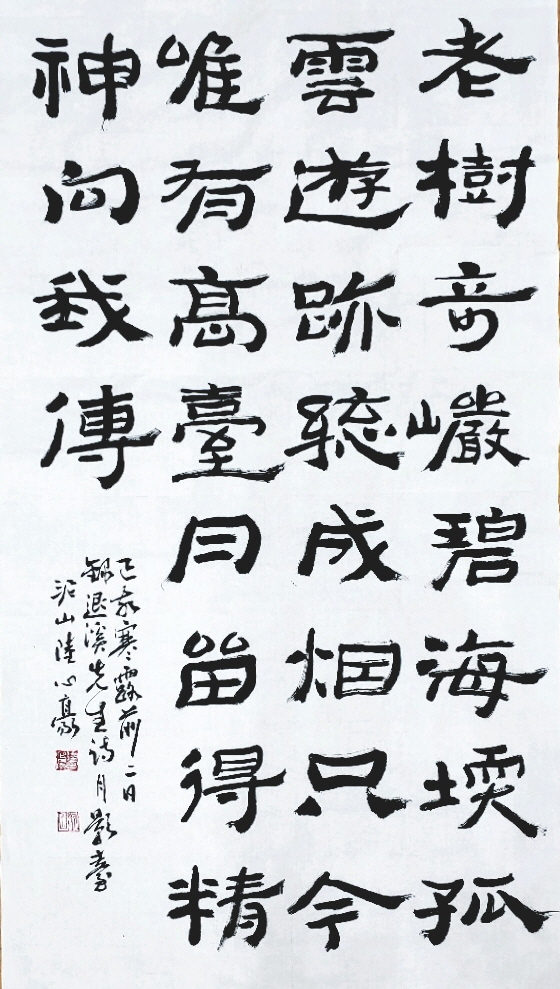 老樹奇巖碧海堧孤
雲遊跡總成烟只今
唯有高臺月留得精
神向我傳
己亥寒露前二日
錄退溪先生詩月影臺
山陸心豪